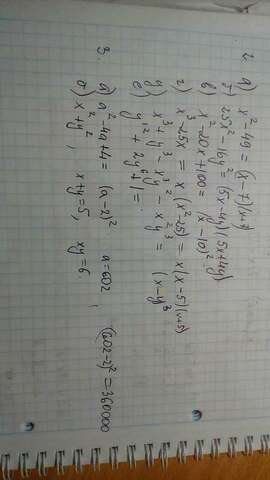 2. а) x² - 49 = (x - 7)(x + 7)
б) 25x² - 16y² = (5x - 4y)(5x + 4y)
в) x² - 20x + 100 = (x - 10)²
г) x³ - 25x = x(x² - 25) = x(x - 5)(x + 5)
д) x³ + y³ - xy² - x²y = (x - y)³
е) y¹² + 2y⁶ + 1 =
3. а) a² - 4a + 4 = (a - 2)² a = 602, (602 - 2)² = 360000
б) x² + y², x + y = 5, xy = 6.